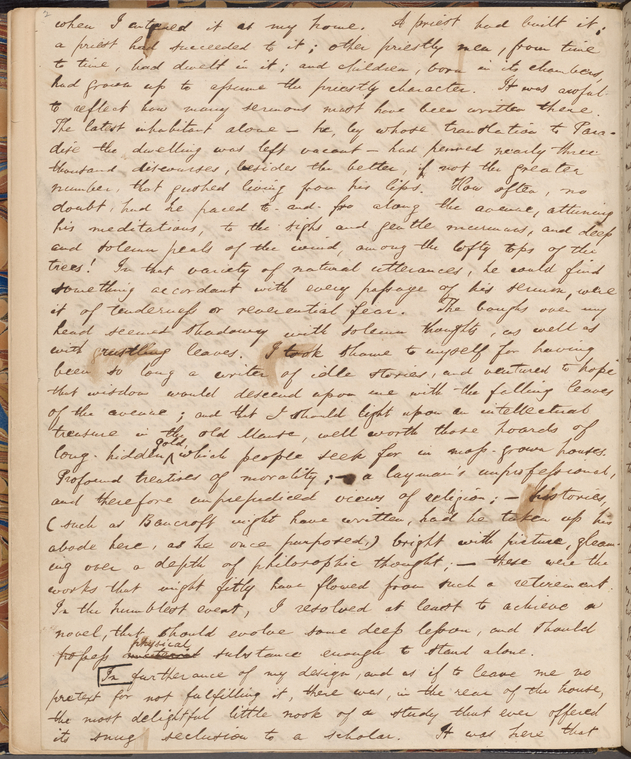 2
when I entered it as my home. A priest had built it;
a priest had succeeded to it; other priestly men, from time
to time, had dwelt in it; and children, born in its chambers,
had grown up to assume the priestly character. It was awful
to reflect how many sermons must have been written there.
The latest inhabitant alone — he, by whose translation to Para-
dise the dwelling was left vacant — had penned nearly three
thousand discourses, besides the better, if not the greater
number, that gushed living from his lips. How often, no
doubt, had he paced to-and-fro along the avenue, attuning
his meditations, to the sighs and gentle murmurs, and deep
and solemn peals of the wind, among the lofty tops of the
trees! In that variety of natural utterances, he could find
something accordant with every passage of his sermon, were
it of tenderness or reverential fear. The boughs over my
head seemed shadowy with solemn thoughts, as well as
with rustling leaves. I took shame to myself for having
been so long a writer of idle stories, and ventured to hope
that wisdom would descend upon me with the falling leaves
of the avenue; and that I should light upon an intellectual
treasure in the old Manse, well worth those hoards of
long-hidden gold, which people seek for in moss-grown houses.
Profound treatises of morality; — a layman's unprofessional,
and therefore unprejudiced views of religion; — histories,
(such as Bancroft might have written, had he taken up his
abode here, as he once purposed,) bright with picture, gleam-
ing over a depth of philosophic thought; — these were the
works that might fitly have flowed from such a retirement.
In the humblest event, I resolved at least to achieve a
novel, that should evolve some deep lesson, and should
possess physical substance enough to stand alone.
In furtherance of my design, and as if to leave me no
pretext for not fulfilling it, there was, in the rear of the house,
the most delightful little nook of a study that ever offered
its snug seclusion to a scholar. It was here that